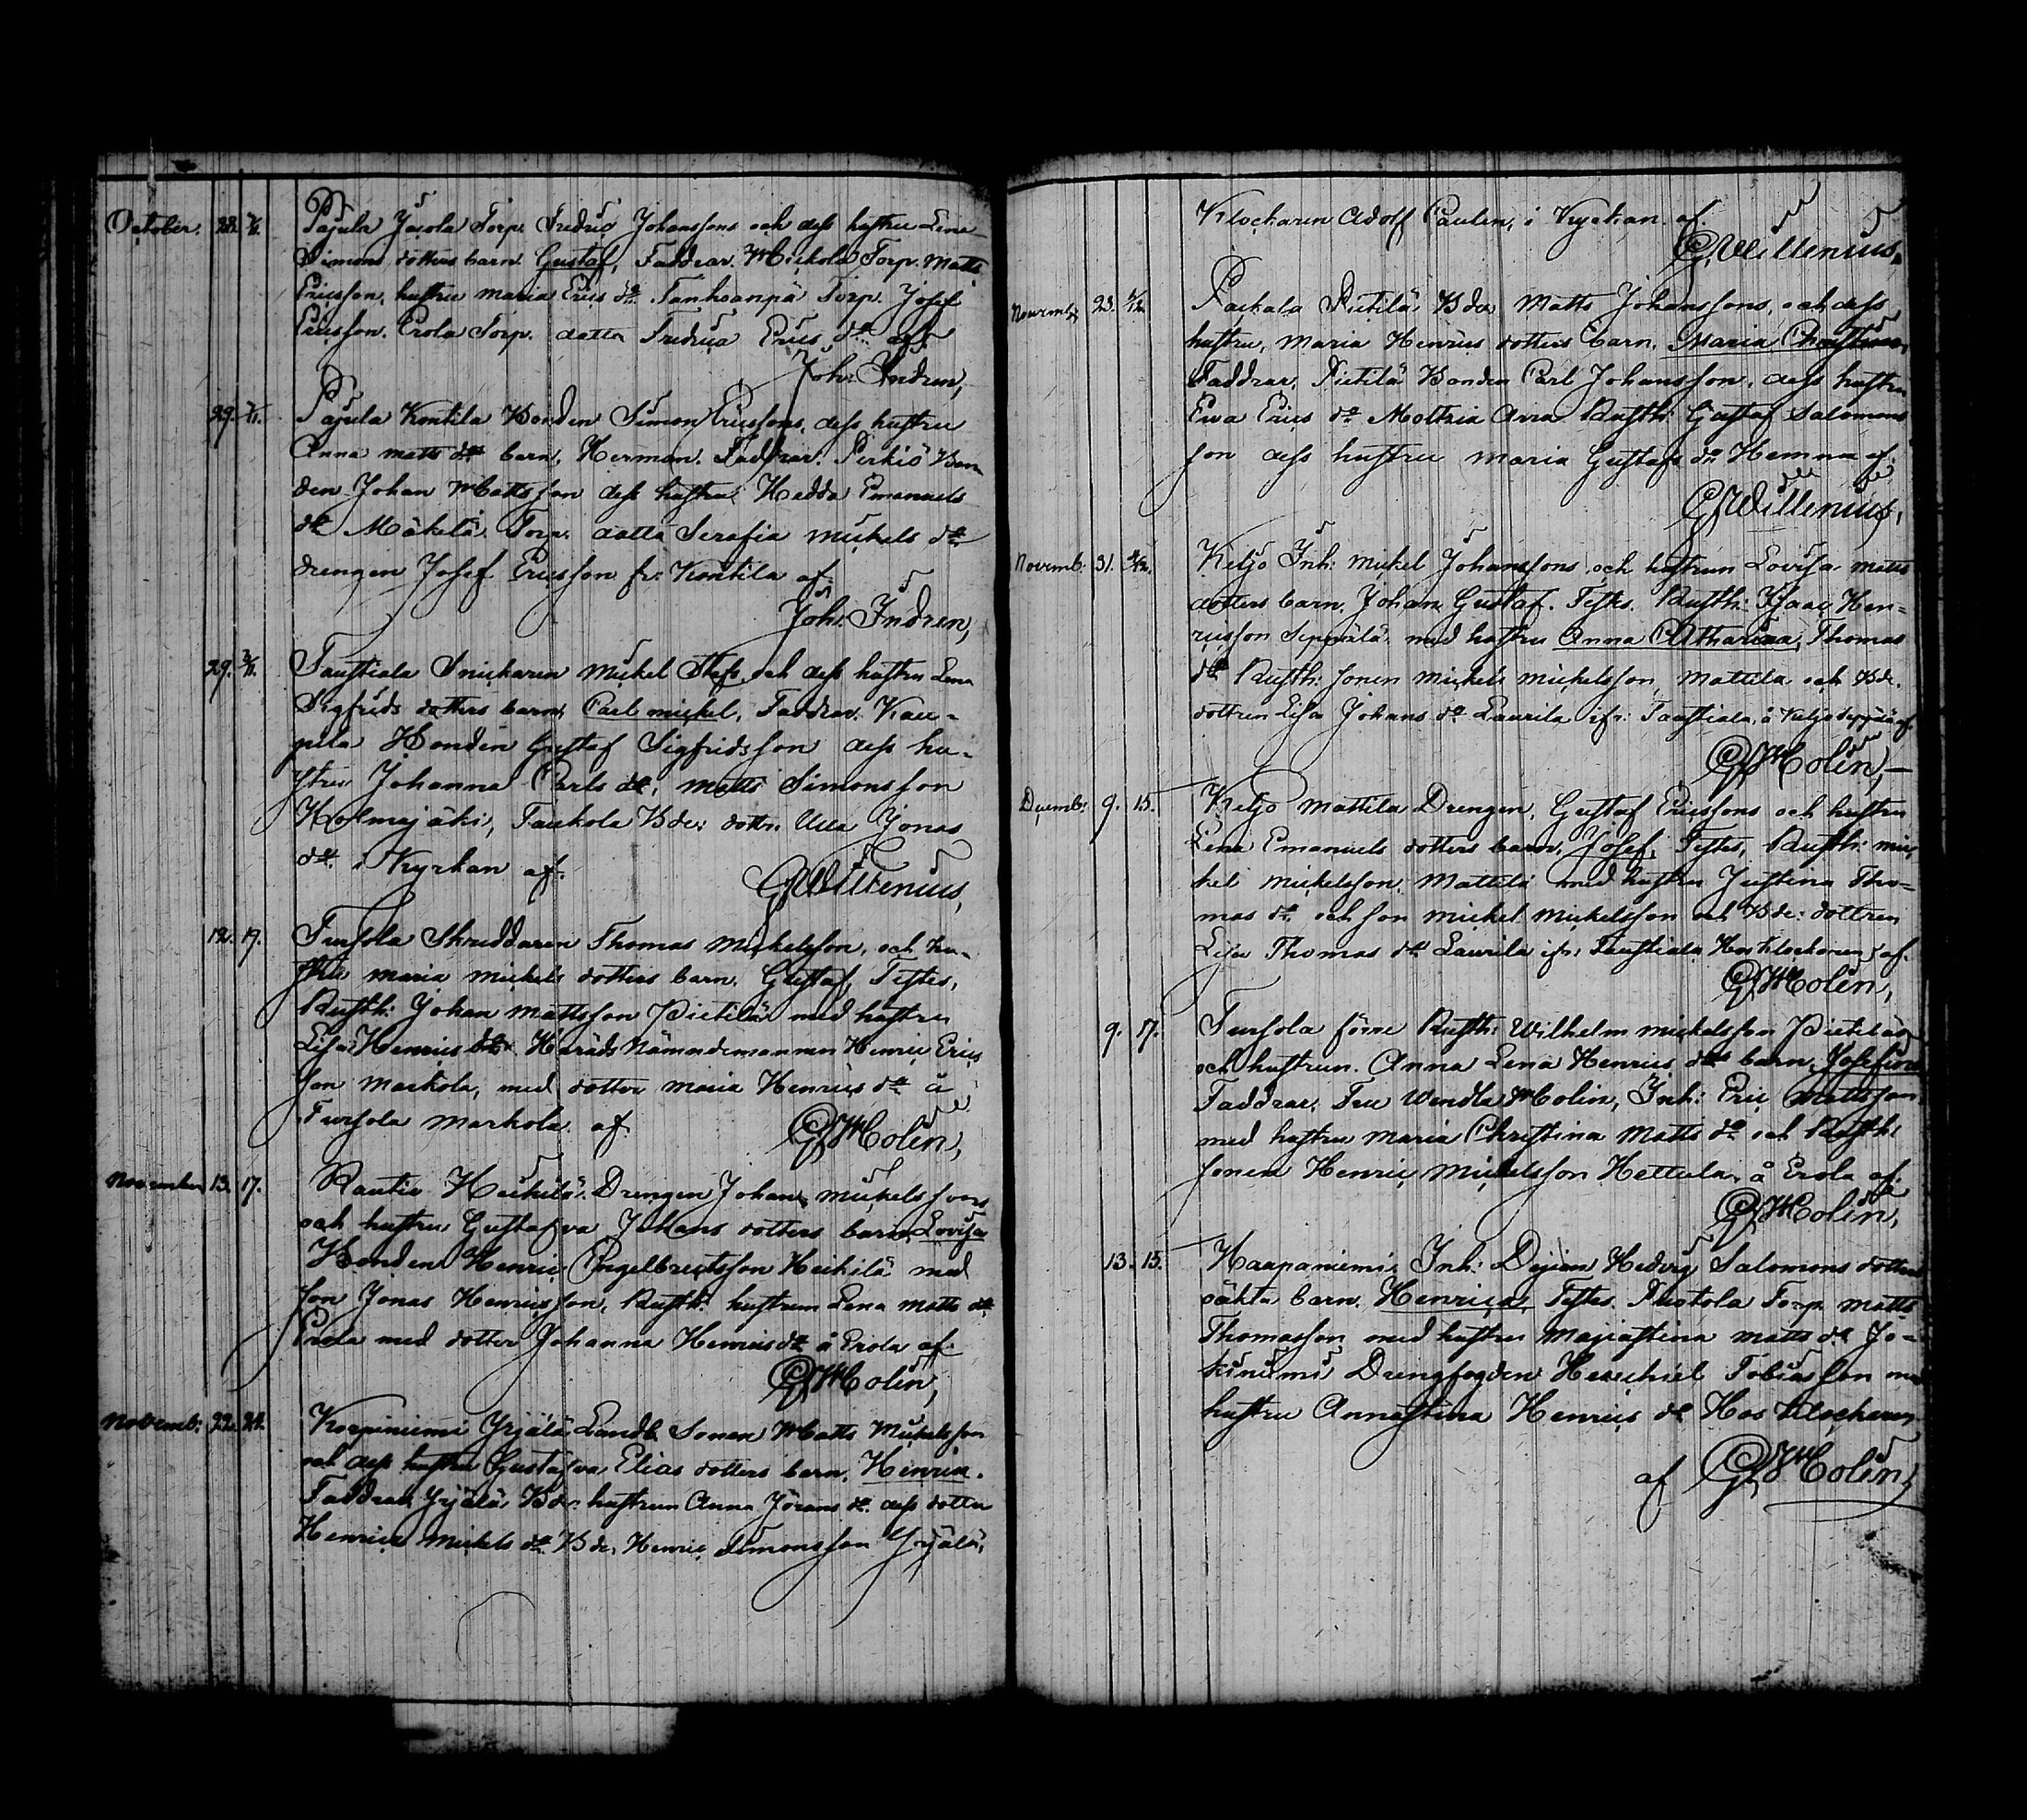 October. 28. 2/11. Pajula Jusola Torp. Fredric Johanssons och dess hustru Lena
Simons dotters barn. Gustaf, Faddrar. Mickola Torp. Matts
Ericsson, hustru Maria Erics dr. Tanhoanpä Torp. Josef
Ericsson. Erola Torp. dotter Fredrica Erics dr af.
Joh: Indren,
29. 2/11. Pajula Kontila Bonden Simon Ericssons, dess hustru
Anna Matts dr barn, Herman. Faddrar. Perkiö Bon
den Johan Mattsson dess hustru Hedda Emanuels
dr Mäkelä Torp. dotter Serafia Mickels dr
drengen Josef Ericsson fr: Kontila af.
Joh: Indren,
29. 2/11. Taustiala Snickaren Mickel Stafs och dess hustru Lena
Sigfrids dotters barn, Carl Mickel, Faddrar. Kau-
pila Bonden Gustaf Sigfridsson dess hu-
stru Johanna Carls dr, Matts Simonsson
Holmajäki, Taukola Bde: dottr. Ulla Jonas
dr i Kyrkan af.
G Willenius,
12. 19. Tursola Skreddaren Thomas Mickelsson, och hu-
stru Maria Mickels dotters barn. Gustaf, Testes,
Rusth: Johan Mattsson Pietilä med hustru
Lisa Henrics dr Härads Nämndemannen Henric Erics
son Markola, med dotter Maria Henrics dr å
Tursola Markola af.
G Molin,
November 13. 17. Rautio Heikilä Drengen Johan Mickelssons
och hustru Gustafva Johans dotters barn, Lovisa
Bonden Henric Engelbrectsson Heikilä med
son Jonas Henricsson, Rusth: hustrun Lena Matts dr
Erola med dotter Johanna Henrics dr å Erola af.
G Molin,
Novemb: 22. 24. Korpiniemi Yrjälä Landb. Sonen Matts Mickelsson
och dess hustru Gustafva Elias dotters barn, Henrica.
Faddrar, Yrjälä Bde: hustrun Anna Jörans dr. dess dotter
Henrica Mickels dr. Bde. Henric Simonsson Yrjälä,
Klockaren Adolf Paulen, i Kyrkan af.
G. Willenius,
Novemb. 23. 2/12. Packala Pietilä Bde Matts Johanssons, och dess
hustru, Maria Henrics dotters barn, Maria Christina,
Faddrar, Pietilä Bonden Carl Johansson, dess hustru
Eva Erics dr Moltzia Rusth: Gustaf Salomons
son dess hustru Maria Gustafs dr Hemma af.
G Willenius,
Novemb: 31. Keljo Inh: Mickel Johanssons och hustrun Lovisa Matts
dotters barn, Johan Gustaf. Testes. Rusth: Isaac Hen-
ricsson Seppälä med hustru Anna Catharina Thomas
dr Rusth: sonen Mickel Mickelsson Mattila och Bde.
dottren Lisa Johans dr Laurila ifr: Taustiala, å Keljo Seppälä af
G Molin,
Decemb: 9. 15. Keljo Mattila Drengen, Gustaf Ericssons och hustru
Lena Emanuels dotters barn, Josef, Testes, Rusth: Mic
kel Mickelsson Mattila med hustru Justina Tho-
mas dr. och son Mickel Mickelsson och Bde: dottren
Lisa Thomas dr Laurila ifr: Taustiala Hos Klockaren af.
G Molin,
9. 17. Tursola förre Rusth: Wilhelm Mickelsson Pietilä
och hustrun Anna Lena Henrics drs barn, Josefina
Faddrar, Fru Wendla Molin, Inh: Eric Mattsson,
med hustru Maria Christina Matts dr och Rusth:
sonen Henric Mickelsson Hettula, å Erola af.
G Molin,
13. 15. Haapaniemi Inh: Pigan Hedvig Salomons dotters
oäkta barn. Henrica, Testes. Torp Matts
Thomasson med hustru Majastina Matts dr. Jo-
kiniemi Drengfogden Hesechiel Tobiasson med
hustru Annastina Henrics dr Hos Klockaren
af G Molin,